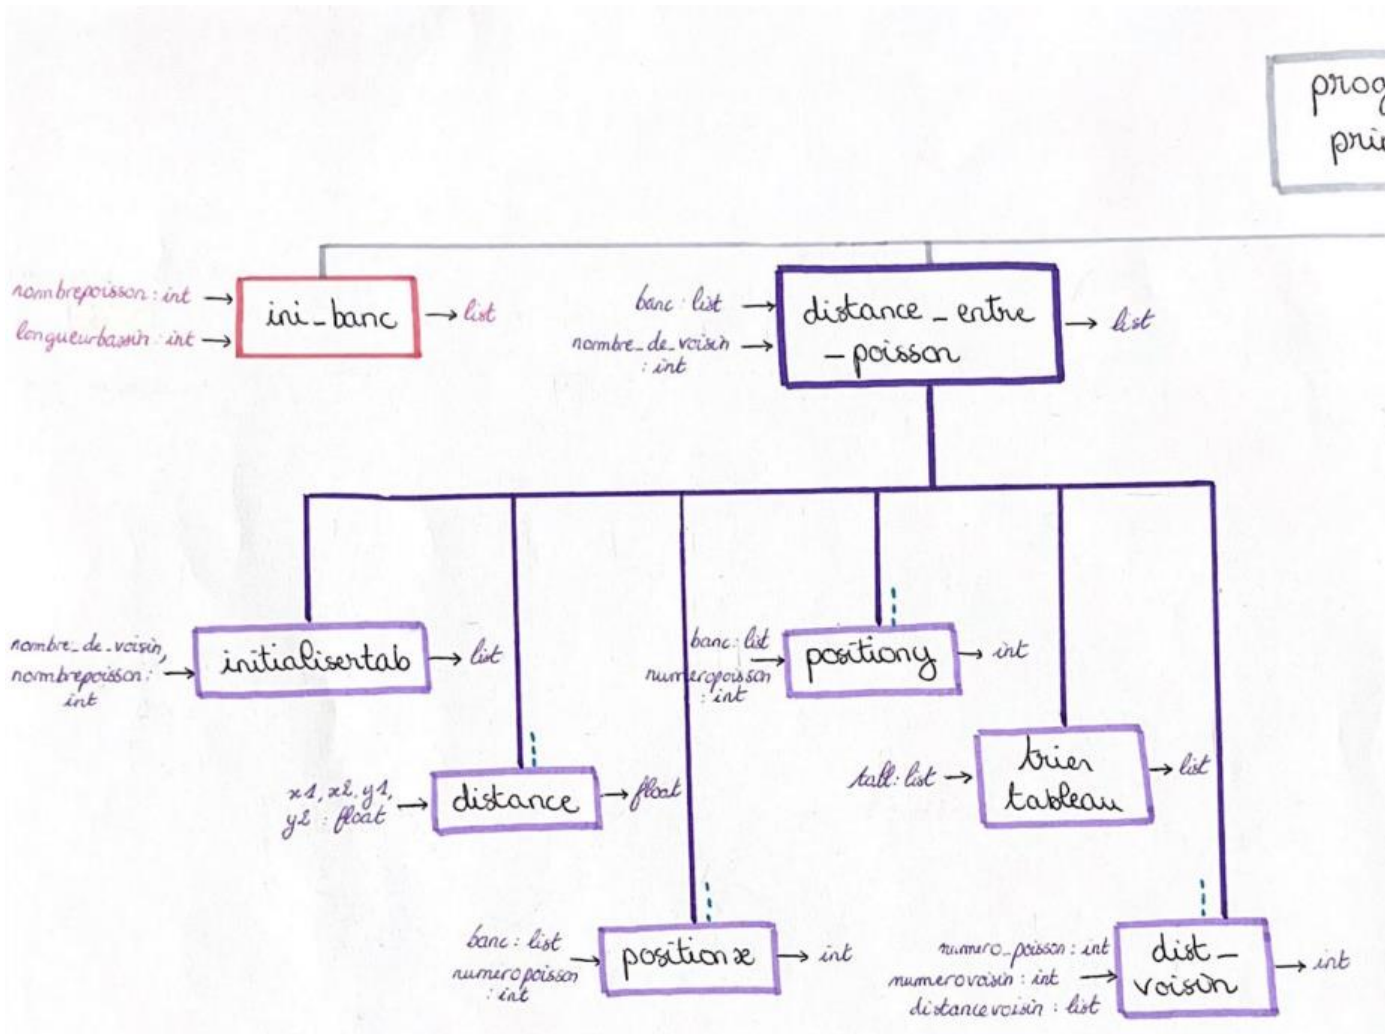 prog
prin
nombrepoisson : int
longueurbassin : int
ini_banc
list
banc : list
nombre_de_voisin
: int
distance_entre
_poisson
list
nombre_de_voisin,
nombrepoisson :
int
initialisertab
list
banc : list
numeropoisson
: int
positiony
int
x1, x2, y1,
y2 : float
distance
float
tabl : list
trier
tableau
list
banc : list
numeropoisson
: int
positionx
int
numero_poisson : int
numerovoisin : int
distancevoisin : list
dist_
voisin
int